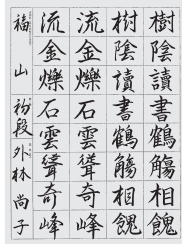 樹陰讀書鶴觴相餽
樹陰讀書鶴觴相餽
流金爍石雲聳奇峰
流金爍石雲聳奇峰
福山 初段 外林尚子